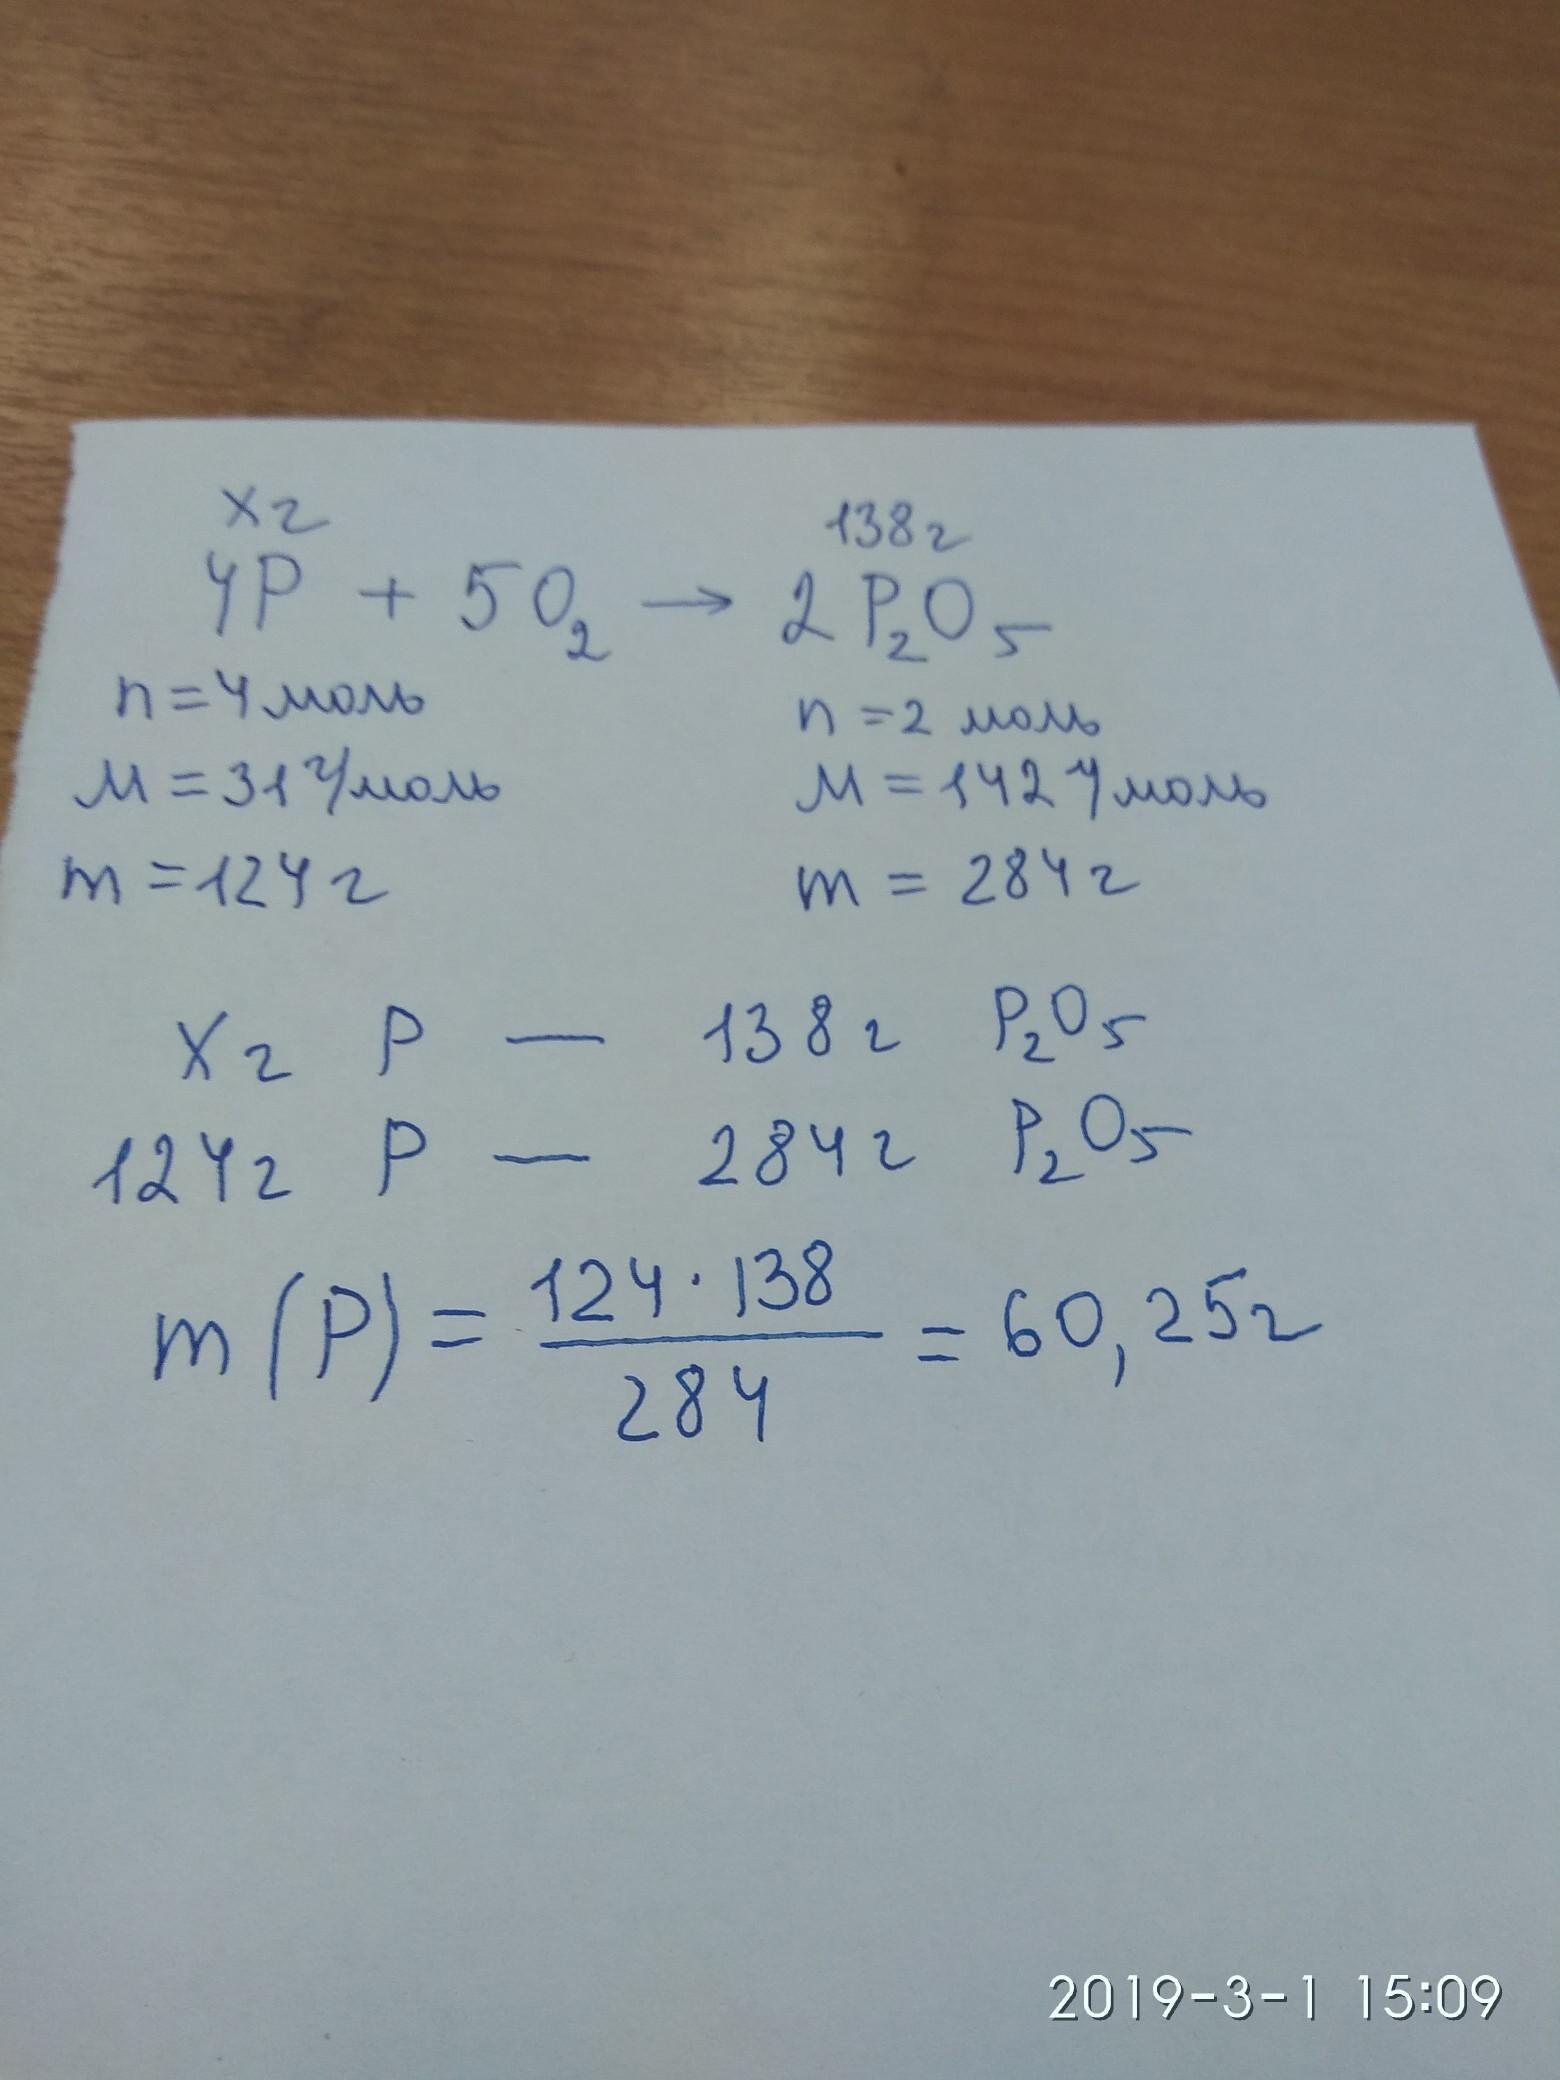 xг 138г
4P + 5O₂ → 2P₂O₅
n=4моль n=2 моль
M=31г/моль M=142г/моль
m=124г m=284г
Xг P — 138г P₂O₅
124г P — 284г P₂O₅
m(P)= 124·138 / 284 = 60,25г
2019-3-1 15:09